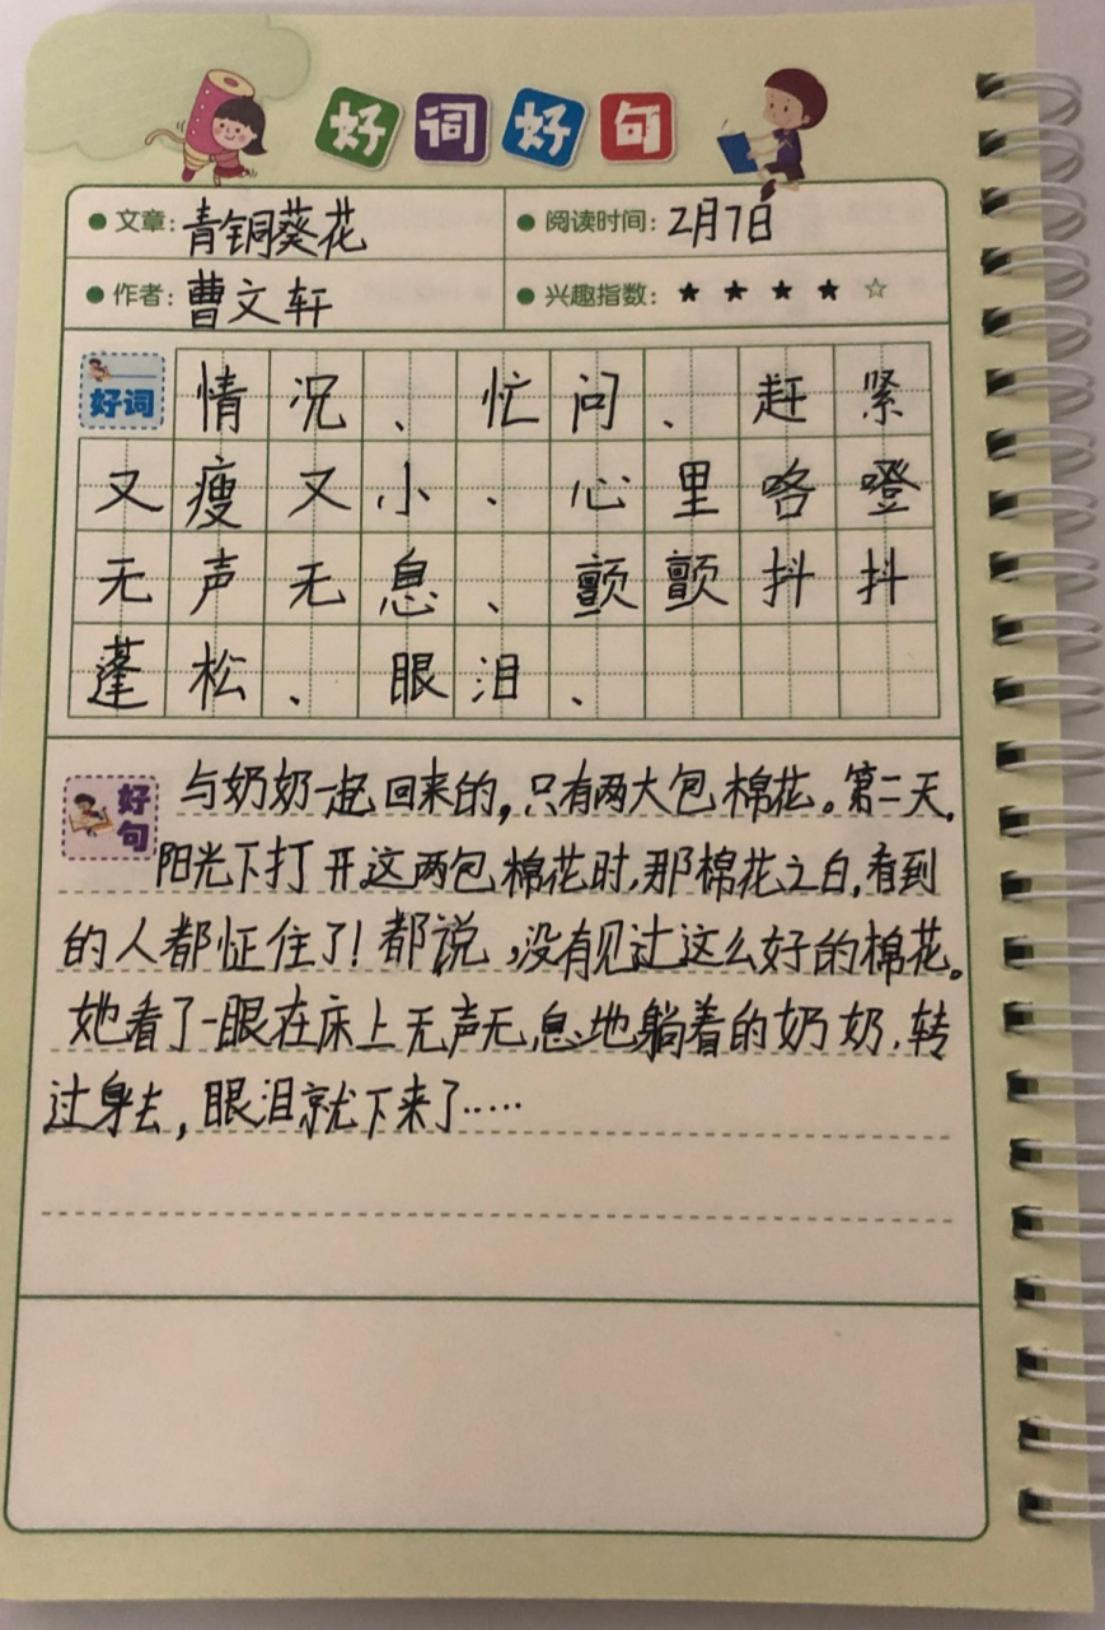 好词好句
文章：青铜葵花
阅读时间：2月7日
作者：曹文轩
兴趣指数：★★★★☆
好词
情况、忙问、赶紧
又瘦又小、心里咯噔
无声无息、颤颤抖抖
蓬松、眼泪、
好句
与奶奶一起回来的，只有两大包棉花。第二天，
阳光下打开这两包棉花时，那棉花之白，看到
的人都怔住了！都说，没有见过这么好的棉花。
她看了一眼在床上无声无息地躺着的奶奶，转
过身去，眼泪就下来了……